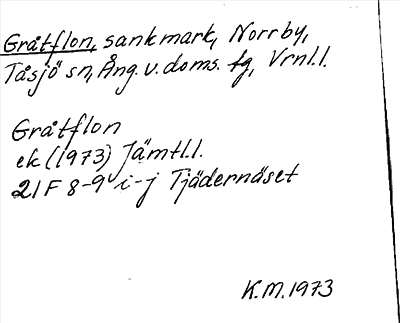 Gråtflon, sankmark, Norrby,
Tåsjö sn, Ång. v. doms. fg, Vrnl.l.
Gråtflon
ek (1973) Jämtl.l.
21F 8-9 i-j Tjädernäset
K.M. 1973